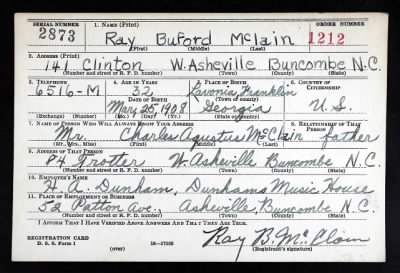 SERIAL NUMBER 1. NAME (Print) ORDER NUMBER
2873 Ray Buford McLain 1212
(First) (Middle) (Last)
2. ADDRESS (Print)
141 Clinton W. Asheville Buncombe N.C.
(Number and street or R. F. D. number) (Town) (County) (State)
3. TELEPHONE 4. AGE IN YEARS 5. PLACE OF BIRTH 6. COUNTRY OF CITIZENSHIP
6516-M 32 Lavonia Franklin
DATE OF BIRTH (Town or county)
Mar. 25, 1908 Georgia U.S.
(Exchange) (Number) (Mo.) (Day) (Yr.) (State or country)
7. NAME OF PERSON WHO WILL ALWAYS KNOW YOUR ADDRESS 8. RELATIONSHIP OF THAT PERSON
Mr. Charles Agustus McClair father
(Mr., Mrs., Miss) (First) (Middle) (Last)
9. ADDRESS OF THAT PERSON
84 Trotter W. Asheville Buncombe N.C.
(Number and street or R. F. D. number) (Town) (County) (State)
10. EMPLOYER'S NAME
H. A. Dunham, Dunhams Music House
11. PLACE OF EMPLOYMENT OR BUSINESS
52 Patton Ave., Asheville, Buncombe N.C.
(Number and street or R. F. D. number) (Town) (County) (State)
I AFFIRM THAT I HAVE VERIFIED ABOVE ANSWERS AND THAT THEY ARE TRUE.
REGISTRATION CARD Ray B. McClain
D. S. S. Form 1 (over) 16—17105 (Registrant's signature)